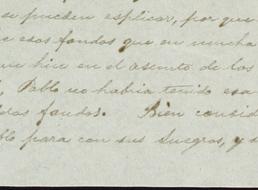 se pueden esplicar, por que
esos fondos que en mucha
hice en el asunto de los
Pablo no habria tenido esa
fondos. Bien consid
para con sus Suegros, y